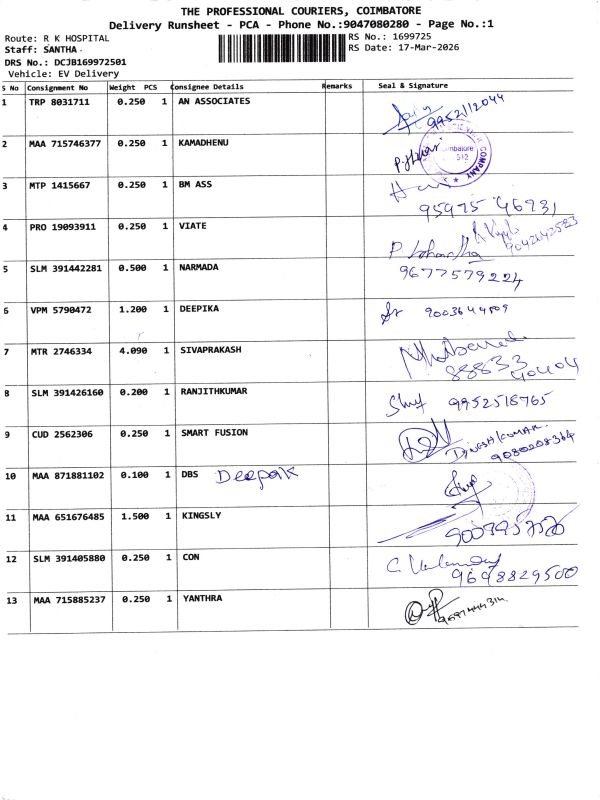 THE PROFESSIONAL COURIERS, COIMBATORE
Delivery Runsheet - PCA - Phone No.:9047080280 - Page No.:1
Route: R K HOSPITAL
RS No.: 1699725
Staff: SANTHA
RS Date: 17-Mar-2026
DRS No.: DCJB169972501
Vehicle: EV Delivery
S No Consignment No Weight PCS Consignee Details Remarks Seal & Signature
1 TRP 8031711 0.250 1 AN ASSOCIATES
9952112044
2 MAA 715746377 0.250 1 KAMADHENU
COMPANY
3 MTP 1415667 0.250 1 BM ASS
95975 46931
4 PRO 19093911 0.250 1 VIATE
5 SLM 391442281 0.500 1 NARMADA
9677579224
6 VPM 5790472 1.200 1 DEEPIKA
7 MTR 2746334 4.090 1 SIVAPRAKASH
88833
40404
8 SLM 391426160 0.200 1 RANJITHKUMAR
9952518765
9 CUD 2562306 0.250 1 SMART FUSION
DINESH KUMAR.
9080208364
10 MAA 871881102 0.100 1 DBS Deepak
11 MAA 651676485 1.500 1 KINGSLY
12 SLM 391405880 0.250 1 CON
9698829500
13 MAA 715885237 0.250 1 YANTHRA